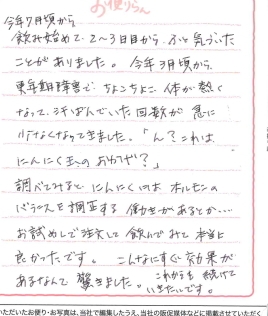 お便りらん
今年7月頃から
飲み始めて2〜3日目から ふと気づいた
ことがありました。今年3月頃から
更年期障害で ちょこちょこ 体が熱く
なって、汗ばんでいた回数が 急に
少なくなってきました。「ん？これは
にんにく玉のおかげ？」
調べてみると にんにくには ホルモンの
バランスを調整する 働きがあるとか…
お試めしで注文して 飲んでみて 本当に
良かったです。こんなにすぐ 効果が
あるなんて 驚きました。これからも 続けて
いきたいです。
いただいたお便り・お写真は、当社で編集したうえ、当社の販促媒体などに掲載させていただく